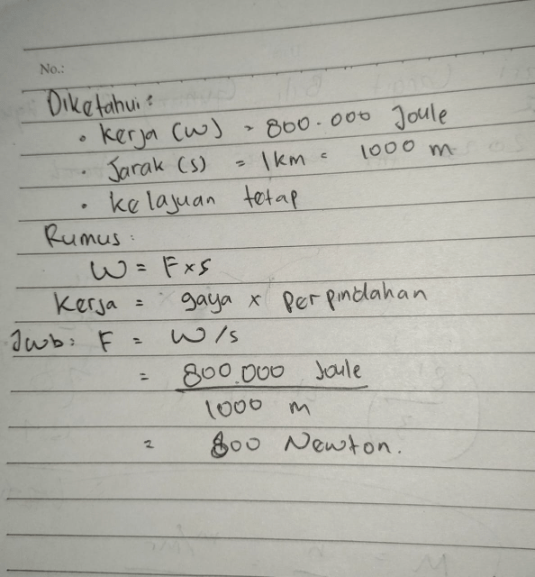 No.:
Diketahui:
• Kerja (W) = 800.000 Joule
• Jarak (s) = 1km = 1000 m
• kelajuan tetap
Rumus:
W = F x s
Kerja = gaya x perpindahan
Jwb: F = W/s
= 800.000 Joule
1000 m
= 800 Newton.